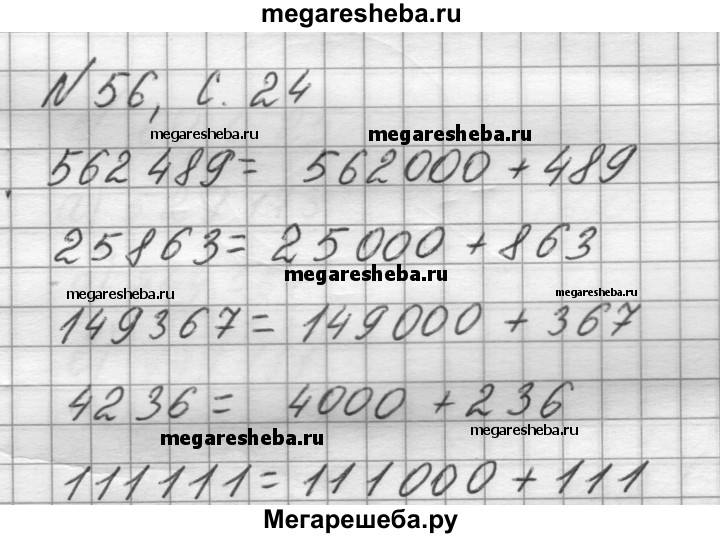 megaresheba.ru
№56, с. 24
megaresheba.ru megaresheba.ru
562 489 = 562000 + 489
25863 = 25000 + 863
megaresheba.ru
megaresheba.ru megaresheba.ru
149367 = 149000 + 367
4236 = 4000 + 236
megaresheba.ru megaresheba.ru
111111 = 111000 + 111
Мегарешеба.ру